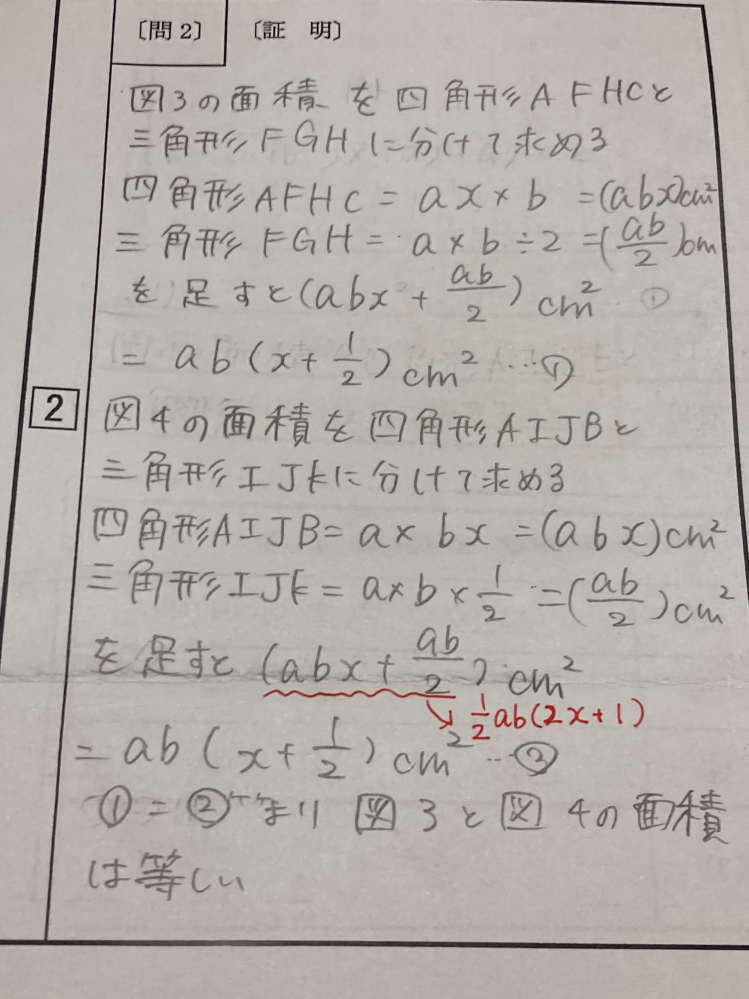 〔問2〕 〔証 明〕
図3の面積を四角形AFHCと
三角形FGHに分けて求める
四角形AFHC = ax×b =(abx)cm²
三角形FGH = a×b÷2 =(ab/2)cm
を足すと(abx + ab/2) cm² ①
= ab(x+1/2)cm² …①
2
図4の面積を四角形AIJBと
三角形IJKに分けて求める
四角形AIJB = a×bx =(abx)cm²
三角形IJK = a×b×1/2 =(ab/2)cm²
を足すと(abx+ab/2)cm²
1/2ab(2x+1)
= ab(x+1/2)cm² …②
①=② より 図3と図4の面積
は等しい